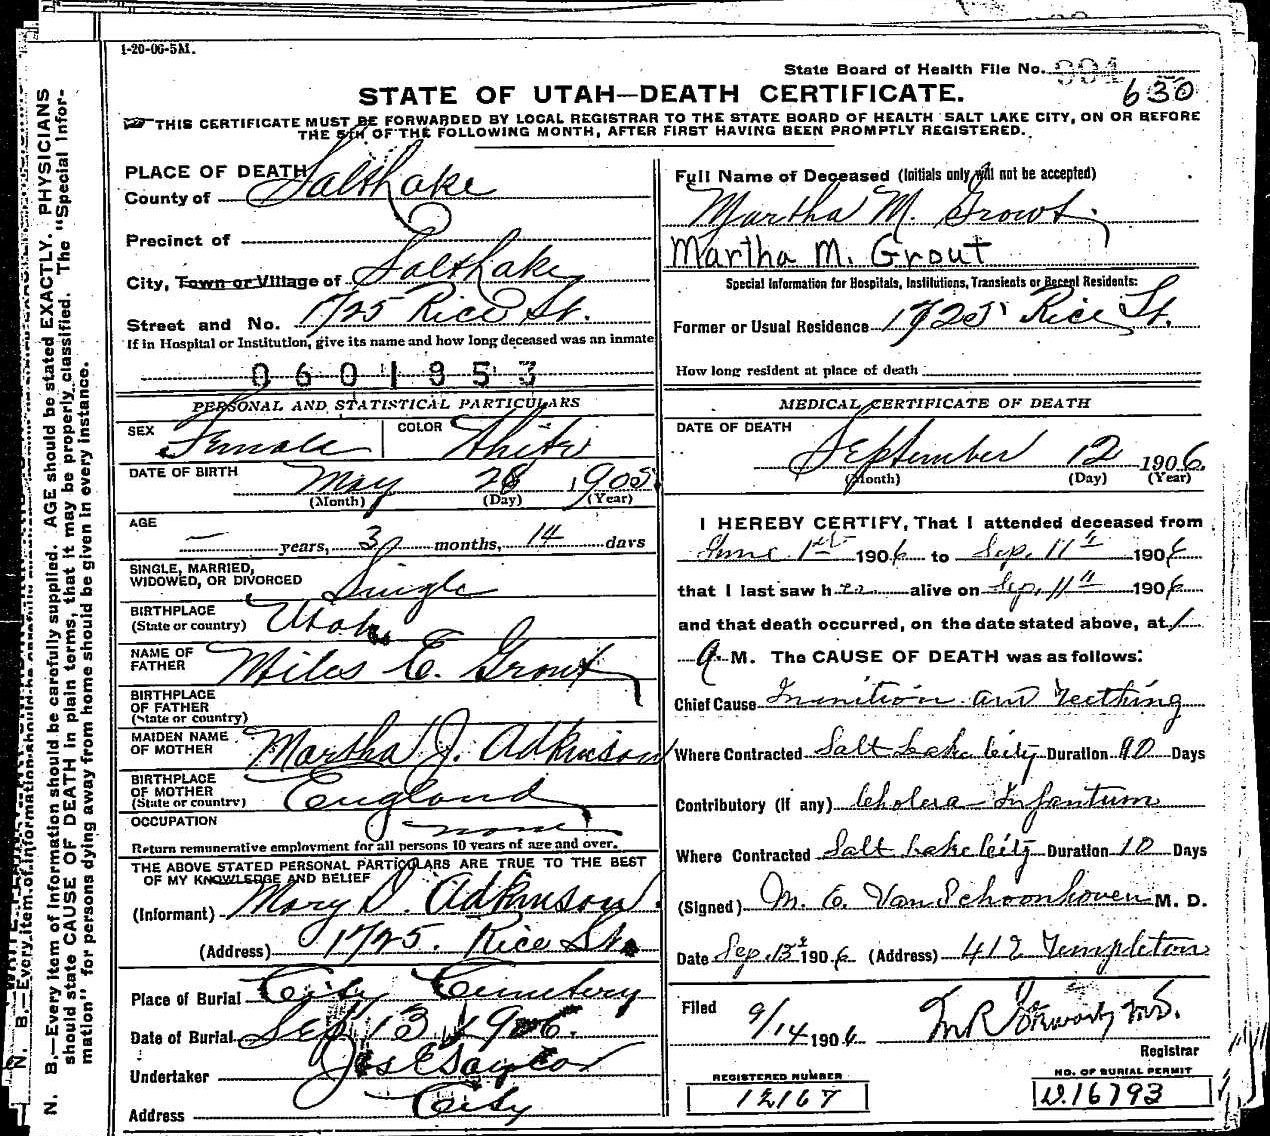 1-20-06-5M.
State Board of Health File No. 994
630
STATE OF UTAH—DEATH CERTIFICATE.
THIS CERTIFICATE MUST BE FORWARDED BY LOCAL REGISTRAR TO THE STATE BOARD OF HEALTH SALT LAKE CITY, ON OR BEFORE
THE 5TH OF THE FOLLOWING MONTH, AFTER FIRST HAVING BEEN PROMPTLY REGISTERED.
PLACE OF DEATH
County of Salt Lake
Precinct of
City, Town or Village of Salt Lake
Street and No. 1725 Rice St.
If in Hospital or Institution, give its name and how long deceased was an inmate
0601853
PERSONAL AND STATISTICAL PARTICULARS
SEX Female COLOR White
DATE OF BIRTH May 28 1905
(Month) (Day) (Year)
AGE — years, 3 months, 14 days
SINGLE, MARRIED,
WIDOWED, OR DIVORCED Single
BIRTHPLACE
(State or country) Utah
NAME OF
FATHER Miles E. Grout
BIRTHPLACE
OF FATHER
(State or country)
MAIDEN NAME
OF MOTHER Martha J. Adkinson
BIRTHPLACE
OF MOTHER
(State or country) England
OCCUPATION none
Return remunerative employment for all persons 10 years of age and over.
THE ABOVE STATED PERSONAL PARTICULARS ARE TRUE TO THE BEST
OF MY KNOWLEDGE AND BELIEF
(Informant) Mary D. Adkinson.
(Address) 1725. Rice St.
Place of Burial City Cemetery
Date of Burial Sep 13 1906.
Undertaker Jos E Taylor
Address City
Full Name of Deceased (Initials only will not be accepted)
Martha M. Grout.
Martha M. Grout
Special Information for Hospitals, Institutions, Transients or Recent Residents:
Former or Usual Residence 1725 Rice St.
How long resident at place of death
MEDICAL CERTIFICATE OF DEATH
DATE OF DEATH
September 12 1906.
(Month) (Day) (Year)
I HEREBY CERTIFY, That I attended deceased from
June 1st 1906 to Sep. 11th 1906
that I last saw her alive on Sep. 11th 1906
and that death occurred, on the date stated above, at 1
a M. The CAUSE OF DEATH was as follows:
Chief Cause Inanition and Teething
Where Contracted Salt Lake City Duration 90 Days
Contributory (If any) Cholera Infantum
Where Contracted Salt Lake City Duration 10 Days
(Signed) M. E. Van Schoonhoven M. D.
Date Sep. 13 1906 (Address) 412 Templeton
Filed 9/14 1906 M.D.
Registrar
REGISTERED NUMBER
12167
NO. OF BURIAL PERMIT
D.16793
N. B.—Every item of information should be carefully supplied. AGE should be stated EXACTLY. PHYSICIANS
should state CAUSE OF DEATH in plain terms, that it may be properly classified. The "Special Infor-
mation" for persons dying away from home should be given in every instance.